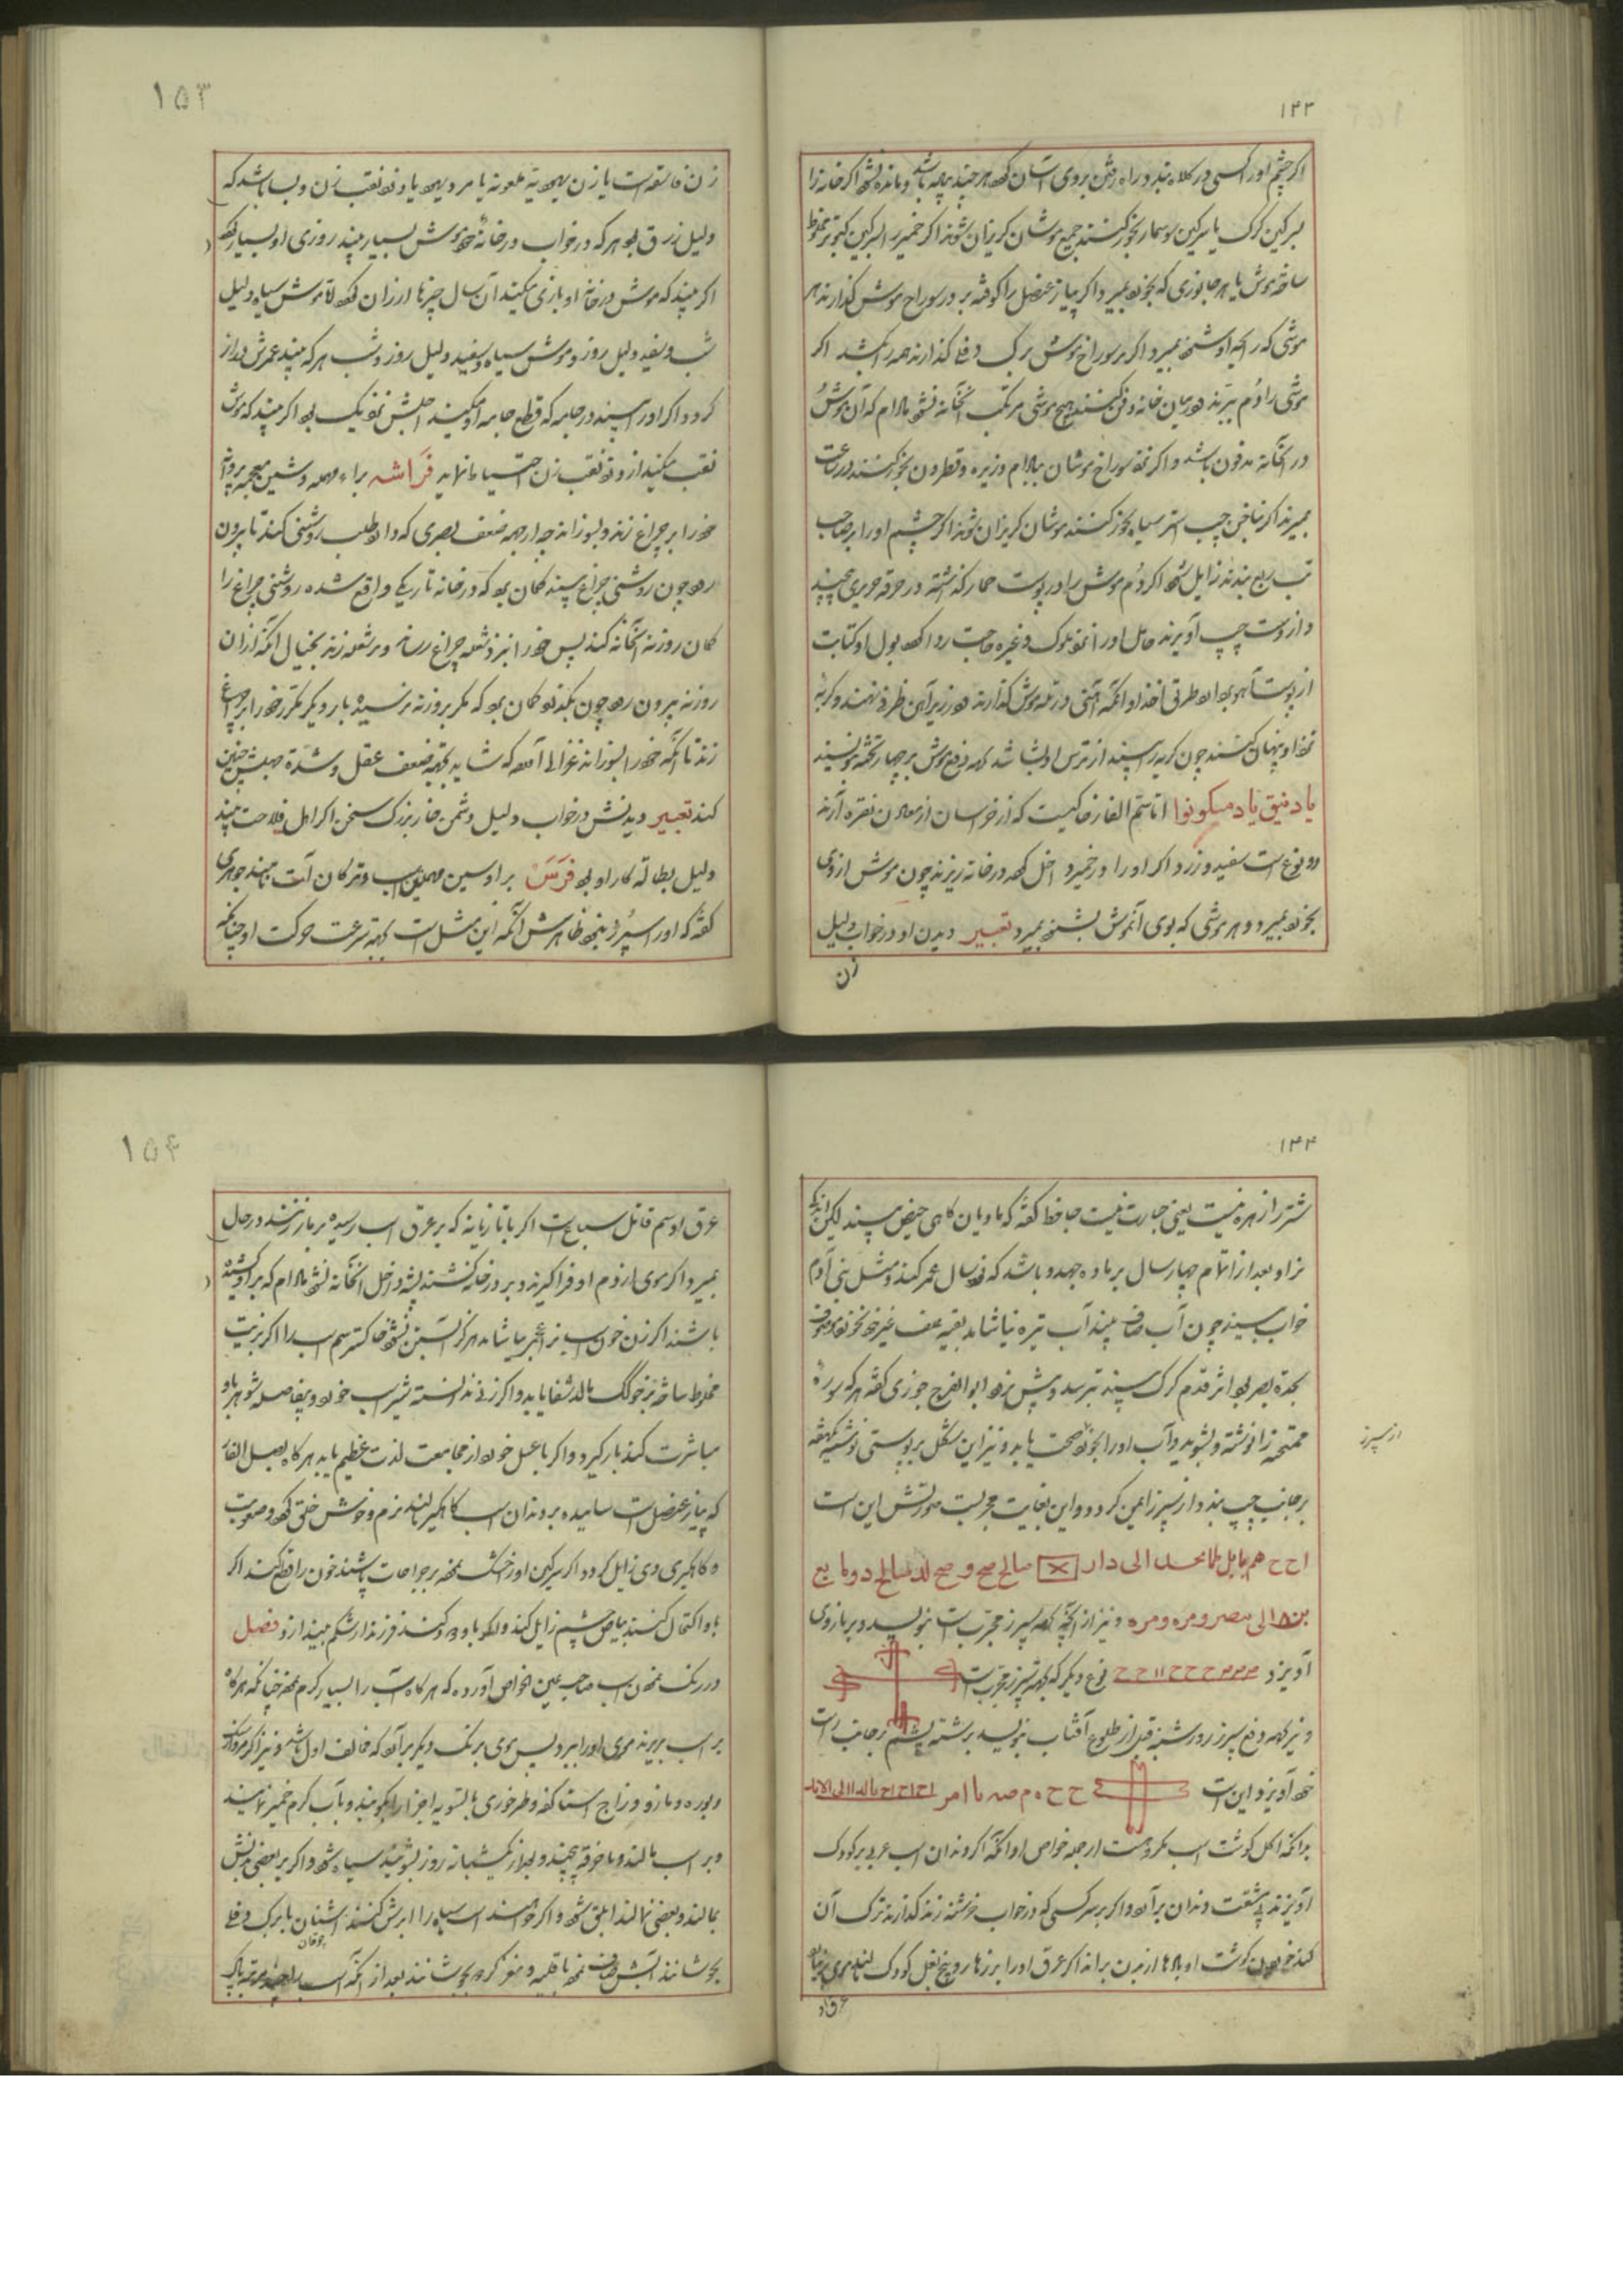 ۱۴۳
اکر چشم او را کسی در کلاه نهد در راه رفتن بروی آسان کردد هر چند پیاده باشد و مانده نشود اکر خانه را
بسرکین کرک یا سرکین سوسمار بخور کنند جمیع موشان کریزان شوند اکر خمیر را بسرکین کبوتر مخلوط
ساخته موش یا هر جانوری که بخورد بمیرد و اکر پیاز عنصل را کوفته بر در سوراخ موش کذارند هر
موشی که رایحه او شنود بمیرد و اکر بر سوراخ موش برک دفلی کذارند همه را بکشد اکر
موشی را دم ببرند و در میان خانه دفن کنند هیچ موشی مرتکب آنخانه نشود مادام که آن موش
در آنخانه مدفون باشد و اکر نزد سوراخ موشان ببادام و زیره و قطرون بخور کنند در ساعت
بمیرند اکر بناخن چپ استر سیاه بخور کنند موشان کریزان شوند اکر چشم او را بر صاحب
تب ربع بندند زایل شود اکر دم موش را در پوست حمار کذاشته در خرقه حریری پیچند
و از دست چپ آویزند حامل او را نزد ملوک و غیره حاجت روا کردد بول او کتابت
از پوست آهو برد طریق اخذ او آنکه آهنی در تله موش کذارند و در زیر آن ظرفی نهند و کربه
نزد او پنهان کنند چون کربه را بیند از ترس او بشاشد بجهه دفع موش بر چهار تخته نویسند
یا دنیق یا دمیکونوا اما سم الفار خاکیست که از خراسان از معادن نقره آرند
دو نوع است سفید و زرد اکر او را در خمیر داخل کرده در خانه ریزند چون موش از وی
بخورد بمیرد و هر موشی که بوی آنموش بشنود بمیرد تعبیر دیدن او در خواب دلیل
زن
۱۵۳
زن فاسقه است یا زن یهودیه ملعونه یا مرد یهود یا دزد نقب زن و بسا باشد که
دلیل رزق بود هر که در خواب در خانه خود موش بسیار بیند روزی او بسیار کردد
اکر بیند که موش در خانه او بازی میکند آن سال چیزها ارزان کردد اما موش سیاه دلیل
شب و سفید دلیل روز و موش سیاه و سفید دلیل روز و شب هر که بیند عمرش دراز
کردد و اکر او را بیند در جامه که قطع جامه او میکند اجلش نزدیک بود اکر بیند که موش
نقب میکند از دزد نقب زن احتیاط نماید فراشه براء مهمله و شین معجمه پروانه
خود را بر چراغ زند و بسوزاند چه از جهه ضعف بصری که دارد طلب روشنی کند تا بیرون
رود چون روشنی چراغ بیند کمان برد که در خانه تاریکی واقع شده روشنی چراغ را
کمان روزنه آنخانه کند پس خود را بنزد شعله چراغ رساند و بر شعله زند بخیال آنکه از آن
روزنه بیرون رود چون بکذرد کمان برد که مکر بروزنه نرسیده بار دیکر مکرر خود را بر چراغ
زند تا آنکه خود را بسوزاند غزالی آورده که شاید بجهه ضعف عقل و شدة جهلش چنین
کند تعبیر دیدنش در خواب دلیل دشمن خار بزرک سخن اکر اهل فلاحت بیند
دلیل بطاله کار او بود فرس برا و سین مهملتین اسب و ترکان آت نامند جوهری
کفته که او را سپرز نبود ظاهرش آنکه این مثل است بجهه سرعت حرکت او چنانکه
۱۴۴
شتر را زهره نیست یعنی جسارت نیست جاحظ کفته که مادیان کاهی حیض بیند لیکن اندک
نر او بعد از اتمام چهار سال بر ماده جهد و باشد که نود سال عمر کند و مثل بنی آدم
خواب بیند چون آب صاف بیند آب تیره نماید بقیه علف غیر خود نخورد و موصوف
بحدة بصر بود اثر قدم کرک بیند بترسد و پیش نرود ابو الفرج جوزی کفته هر که سورة
ممتحنه را نوشته و بشوید و آب او را بخورد صحت یابد و نیز این شکل بر پوستی نوشته یکهفته
بر جانب چپ بندد از سپرز ایمن کردد و این بغایت مجربست صورتش این است
از سپرز
ا ح ح هم مابل ملا محسد الی دار صالح صح و صح لله صالح دو ما بع
بن ۵ الی مصر و مره و مره و نیز از آنچه بجهه سپرز مجرب است بنویسد و بر بازوی
آویزد ححح۱۱حح نوع دیکر که بجهه سپرز مجرب است
و نیز بجهه دفع سپرز روز شنبه قبل از طلوع آفتاب بنویسد بر رشته پشم بر جانب راست
خود آویزد و این است ح ح ه م صه ما امر
بدانکه اکل کوشت اسب مکروهست از جمله خواص او آنکه اکر دندان اسب عربی بر کودک
آویزند بی مشقت دندان برآورد و اکر بر سر کسی که در خواب خرخر زند کذارند ترک آن
کند خوردن کوشت او بادها از بدن براند اکر عرق او را بر زهار و بیخ بغل کودک بمالند موی نروید
عرق او
۱۵۴
عرق او سم قاتل سباع است اکر با تازیانه که بر عرق اسب رسیده بر مار زنند در حال
بمیرد و اکر موی از دم او فرا کیرند و بر در خانه کشند پشه داخل آنخانه نشود مادام که بر آن کشیده
باشند اکر زن خون اسب بیاشامد هرکز آبستن نشود خاکستر سم اسب را اکر بزیت
مخلوط ساخته بر خوک مالند شفا یابد و اکر زنی ندانسته شیر اسب خورد و بفاصله شوهر با او
مباشرت کند بار کیرد و اکر با عسل خورد از مجامعت لذت عظیم یابد هر کاه بصل الفار
که پیاز عنصل است ساییده بر دندان اسب کاهکیر مالند نرم و خوش خلق کردد و صعوبت
و کاهکیری وی زایل کردد اکر سرکین او خشک نموده بر جراحات پاشند خون را قطع کند اکر
باو اکتحال کنند بیاض چشم زایل کند و اکر باو بخور کنند فرزند از شکم بیندازد فصل
در رنک نمودن اسب صاحب عین الخواص آورده که هر کاه آب را بسیار کرم نموده چنانکه هر کاه
بر اسب بریزند موی او را ببرد پس موی برنک دیکر برآید که مخالف اول باشد و نیز اکر مردار سنک
و بوره و مازو و زاج
و بر اسب بمالند و با خرقه پیچند و بعد از یکشبانه روز بشویند سیاه شود و اکر بر بعضی بدنش
بمالند و بعضی نمالند ابلق شود و اکر خواهند اسب سیاه را ابرش کنند اشنان با برک دفلی
بجوشانند آبش صاف نموده با قلیه و مغز کرم بجوشانند بعد از آنکه اسب را